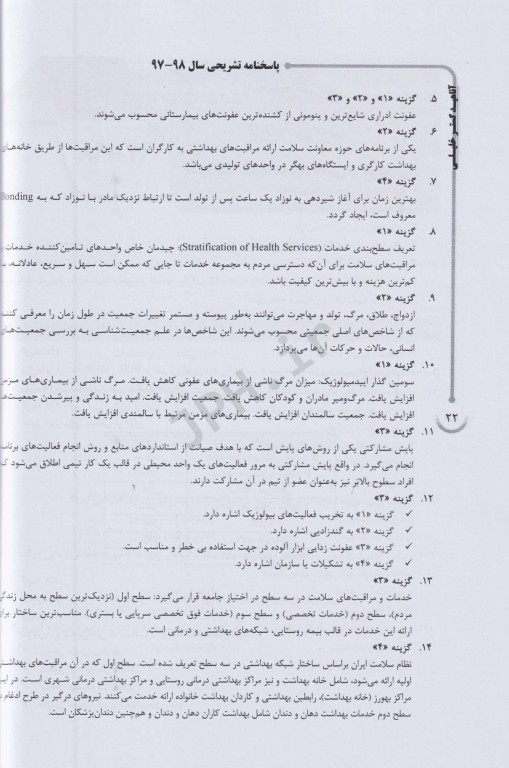 پاسخنامه تشریحی سال ۹۸-۹۷
آناهید گستر خلیلی
۵. گزینه «۱» و «۲» و «۳»
عفونت ادراری شایع‌ترین و پنومونی از کشنده‌ترین عفونت‌های بیمارستانی محسوب می‌شوند.
۶. گزینه «۲»
یکی از برنامه‌های حوزه معاونت سلامت ارائه مراقبت‌های بهداشتی به کارگران است که این مراقبت‌ها از طریق خانه‌های
بهداشت کارگری و ایستگاه‌های بهگر در واحدهای تولیدی می‌باشد.
۷. گزینه «۴»
بهترین زمان برای آغاز شیردهی به نوزاد یک ساعت پس از تولد است تا ارتباط نزدیک مادر با نوزاد که به Bonding
معروف است، ایجاد گردد.
۸. گزینه «۱»
تعریف سطح‌بندی خدمات (Stratification of Health Services): چیدمان خاص واحدهای تامین‌کننده خدمات و
مراقبت‌های سلامت برای آن‌که دسترسی مردم به مجموعه خدمات تا جایی که ممکن است سهل و سریع، عادلانه،
کم‌ترین هزینه و با بیش‌ترین کیفیت باشد.
۹. گزینه «۲»
ازدواج، طلاق، مرگ، تولد و مهاجرت می‌توانند به‌طور پیوسته و مستمر تغییرات جمعیت در طول زمان را معرفی کنند
که از شاخص‌های اصلی جمعیتی محسوب می‌شوند. این شاخص‌ها در علم جمعیت‌شناسی به بررسی جمعیت‌های
انسانی، حالات و حرکات آن‌ها می‌پردازد.
۱۰. گزینه «۱»
سومین گذار اپیدمیولوژیک: میزان مرگ ناشی از بیماری‌های عفونی کاهش یافت. مرگ ناشی از بیماری‌های مزمن
افزایش یافت. مرگ‌ومیر مادران و کودکان کاهش یافت. جمعیت افزایش یافت. امید به زندگی و پیرشدن جمعیت‌ها
افزایش یافت. جمعیت سالمندان افزایش یافت. بیماری‌های مزمن مرتبط با سالمندی افزایش یافت.
۲۲
۱۱. گزینه «۳»
پایش مشارکتی یکی از روش‌های پایش است که با هدف صیانت از استانداردهای منابع و روش انجام فعالیت‌های برنامه
انجام می‌گیرد. در واقع پایش مشارکتی به مرور فعالیت‌های یک واحد محیطی در قالب یک کار تیمی اطلاق می‌شود که
افراد سطوح بالاتر نیز به‌عنوان عضو از تیم در آن مشارکت دارند.
۱۲. گزینه «۳»
✓ گزینه «۱» به تخریب فعالیت‌های بیولوژیک اشاره دارد.
✓ گزینه «۲» به گندزدایی اشاره دارد.
✓ گزینه «۳» عفونت زدایی ابزار آلوده در جهت استفاده بی خطر و مناسب است.
✓ گزینه «۴» به تشکیلات یا سازمان اشاره دارد.
۱۳. گزینه «۳»
خدمات و مراقبت‌های سلامت در سه سطح در اختیار جامعه قرار می‌گیرد: سطح اول (نزدیک‌ترین سطح به محل زندگی
مردم)، سطح دوم (خدمات تخصصی) و سطح سوم (خدمات فوق تخصصی سرپایی یا بستری). مناسب‌ترین ساختار برای
ارائه این خدمات در قالب بیمه روستایی، شبکه‌های بهداشتی و درمانی است.
۱۴. گزینه «۴»
نظام سلامت ایران براساس ساختار شبکه بهداشتی در سه سطح تعریف شده است. سطح اول که در آن مراقبت‌های بهداشتی
اولیه ارائه می‌شود، شامل خانه بهداشت و نیز مراکز بهداشتی درمانی روستایی و مراکز بهداشتی درمانی شهری است. در این
مراکز بهورز (خانه بهداشت)، رابطین بهداشتی و کاردان بهداشت خانواده ارائه خدمت می‌کنند. نیروهای درگیر در طرح ادغام
سطح دوم خدمات بهداشت دهان و دندان شامل بهداشت کاران دهان و دندان و هم‌چنین دندان‌پزشکان است.